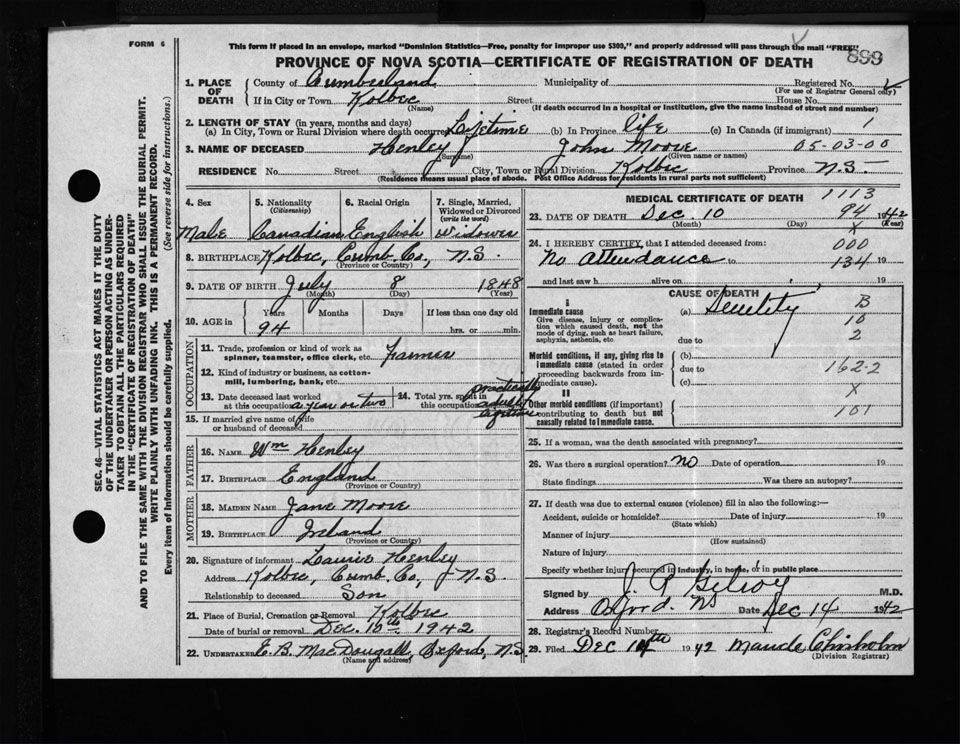 FORM 6
This form if placed in an envelope, marked "Dominion Statistics—Free, penalty for improper use $300," and properly addressed will pass through the mail "FREE" X
PROVINCE OF NOVA SCOTIA—CERTIFICATE OF REGISTRATION OF DEATH 899
1. PLACE OF DEATH County of Cumberland Municipality of Registered No.
(For use of Registrar General only)
If in City or Town Kolbec Street House No.
(Name) (If death occurred in a hospital or institution, give the name instead of street and number)
2. LENGTH OF STAY (in years, months and days)
(a) In City, Town or Rural Division where death occurred Lifetime (b) In Province life (c) In Canada (if immigrant) 1
3. NAME OF DECEASED Henley John Moore 05-03-00
(Surname) (Given name or names)
RESIDENCE No. Street City, Town or Rural Division Kolbec Province N.S.
(Residence means usual place of abode. Post Office Address for residents in rural parts not sufficient)
4. Sex
Male
5. Nationality
(Citizenship)
Canadian
6. Racial Origin
English
7. Single, Married, Widowed or Divorced
(write the word)
Widower
8. BIRTHPLACE Kolbec, Cumb. Co, N.S.
(Province or Country)
9. DATE OF BIRTH July 8 1848
(Month) (Day) (Year)
10. AGE in Years Months Days If less than one day old
94 hrs. or min.
OCCUPATION
11. Trade, profession or kind of work as spinner, teamster, office clerk, etc. Farmer
12. Kind of industry or business, as cotton-mill, lumbering, bank, etc.
13. Date deceased last worked at this occupation a year or two
14. Total yrs. spent in this occupation practically
15. If married give name of wife or husband of deceased
FATHER
16. NAME Wm Henley
17. BIRTHPLACE England
MOTHER
18. MAIDEN NAME Jane Moore
19. BIRTHPLACE Ireland
(Province or Country)
20. Signature of informant Laurie Henley
Address Kolbec, Cumb. Co, N.S.
Relationship to deceased Son
21. Place of Burial, Cremation or Removal Kolbec
Date of burial or removal Dec. 1942
22. UNDERTAKER E. B. MacDougall, Oxford, N.S.
(Name and address)
MEDICAL CERTIFICATE OF DEATH 1113
23. DATE OF DEATH Dec. 10 94 1942
(Month) (Day) (Year)
X
24. I HEREBY CERTIFY, that I attended deceased from: 000
No attendance to 134 19
and last saw h alive on 19
CAUSE OF DEATH
I
Immediate cause
Give disease, injury or complication which caused death, not the mode of dying, such as heart failure, asphyxia, asthenia, etc.
(a) Senility B
10
due to 2
Morbid conditions, if any, giving rise to immediate cause (stated in order proceeding backwards from immediate cause).
(b)
due to 162-2
(c)
X
II
Other morbid conditions (if important) contributing to death but not causally related to immediate cause.
101
25. If a woman, was the death associated with pregnancy?
26. Was there a surgical operation? no Date of operation 19
State findings Was there an autopsy?
27. If death was due to external causes (violence) fill in also the following:—
Accident, suicide or homicide? Date of injury 19
(State which)
Manner of injury
(How sustained)
Nature of injury
Specify whether injury occurred in industry, in home, or in public place
Signed by J. P. Gilroy M.D.
Address Oxford. NS Date Dec 14 1942
28. Registrar's Record Number
29. Filed Dec 1942 Maude Chisholm
(Division Registrar)
SEC. 46—VITAL STATISTICS ACT MAKES IT THE DUTY
OF THE UNDERTAKER OR PERSON ACTING AS UNDER-
TAKER TO OBTAIN ALL THE PARTICULARS REQUIRED
IN THE "CERTIFICATE OF REGISTRATION OF DEATH"
AND TO FILE THE SAME WITH THE DIVISION REGISTRAR WHO SHALL ISSUE THE BURIAL PERMIT.
WRITE PLAINLY WITH UNFADING INK. THIS IS A PERMANENT RECORD.
Every item of Information should be carefully supplied. (See reverse side for instructions.)